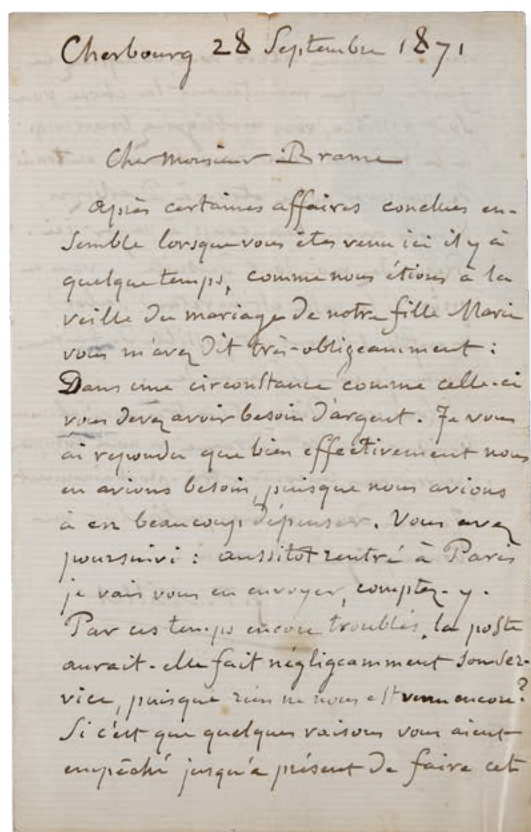 Cherbourg 28 Septembre 1871
Cher Monsieur Brame
Après certaines affaires conclues en-
semble lorsque vous êtes venu ici il y à
quelque temps, comme nous étions à la
veille du mariage de notre fille Marie
vous m'avez dit très-obligeamment :
Dans une circonstance comme celle-ci
vous devez avoir besoin d'argent. Je vous
ai repondu que bien effectivement nous
en avions besoin, puisque nous avions
à en beaucoup dépenser. Vous avez
poursuivi : aussitot rentré à Paris
je vais vous en envoyer, comptez-y.
Par ces temps encore troublés, la poste
aurait-elle fait négligeamment son ser-
vice, puisque rien ne nous est venu encore?
Si c'est que quelques raisons vous aient
empêché jusqu'a présent de faire cet